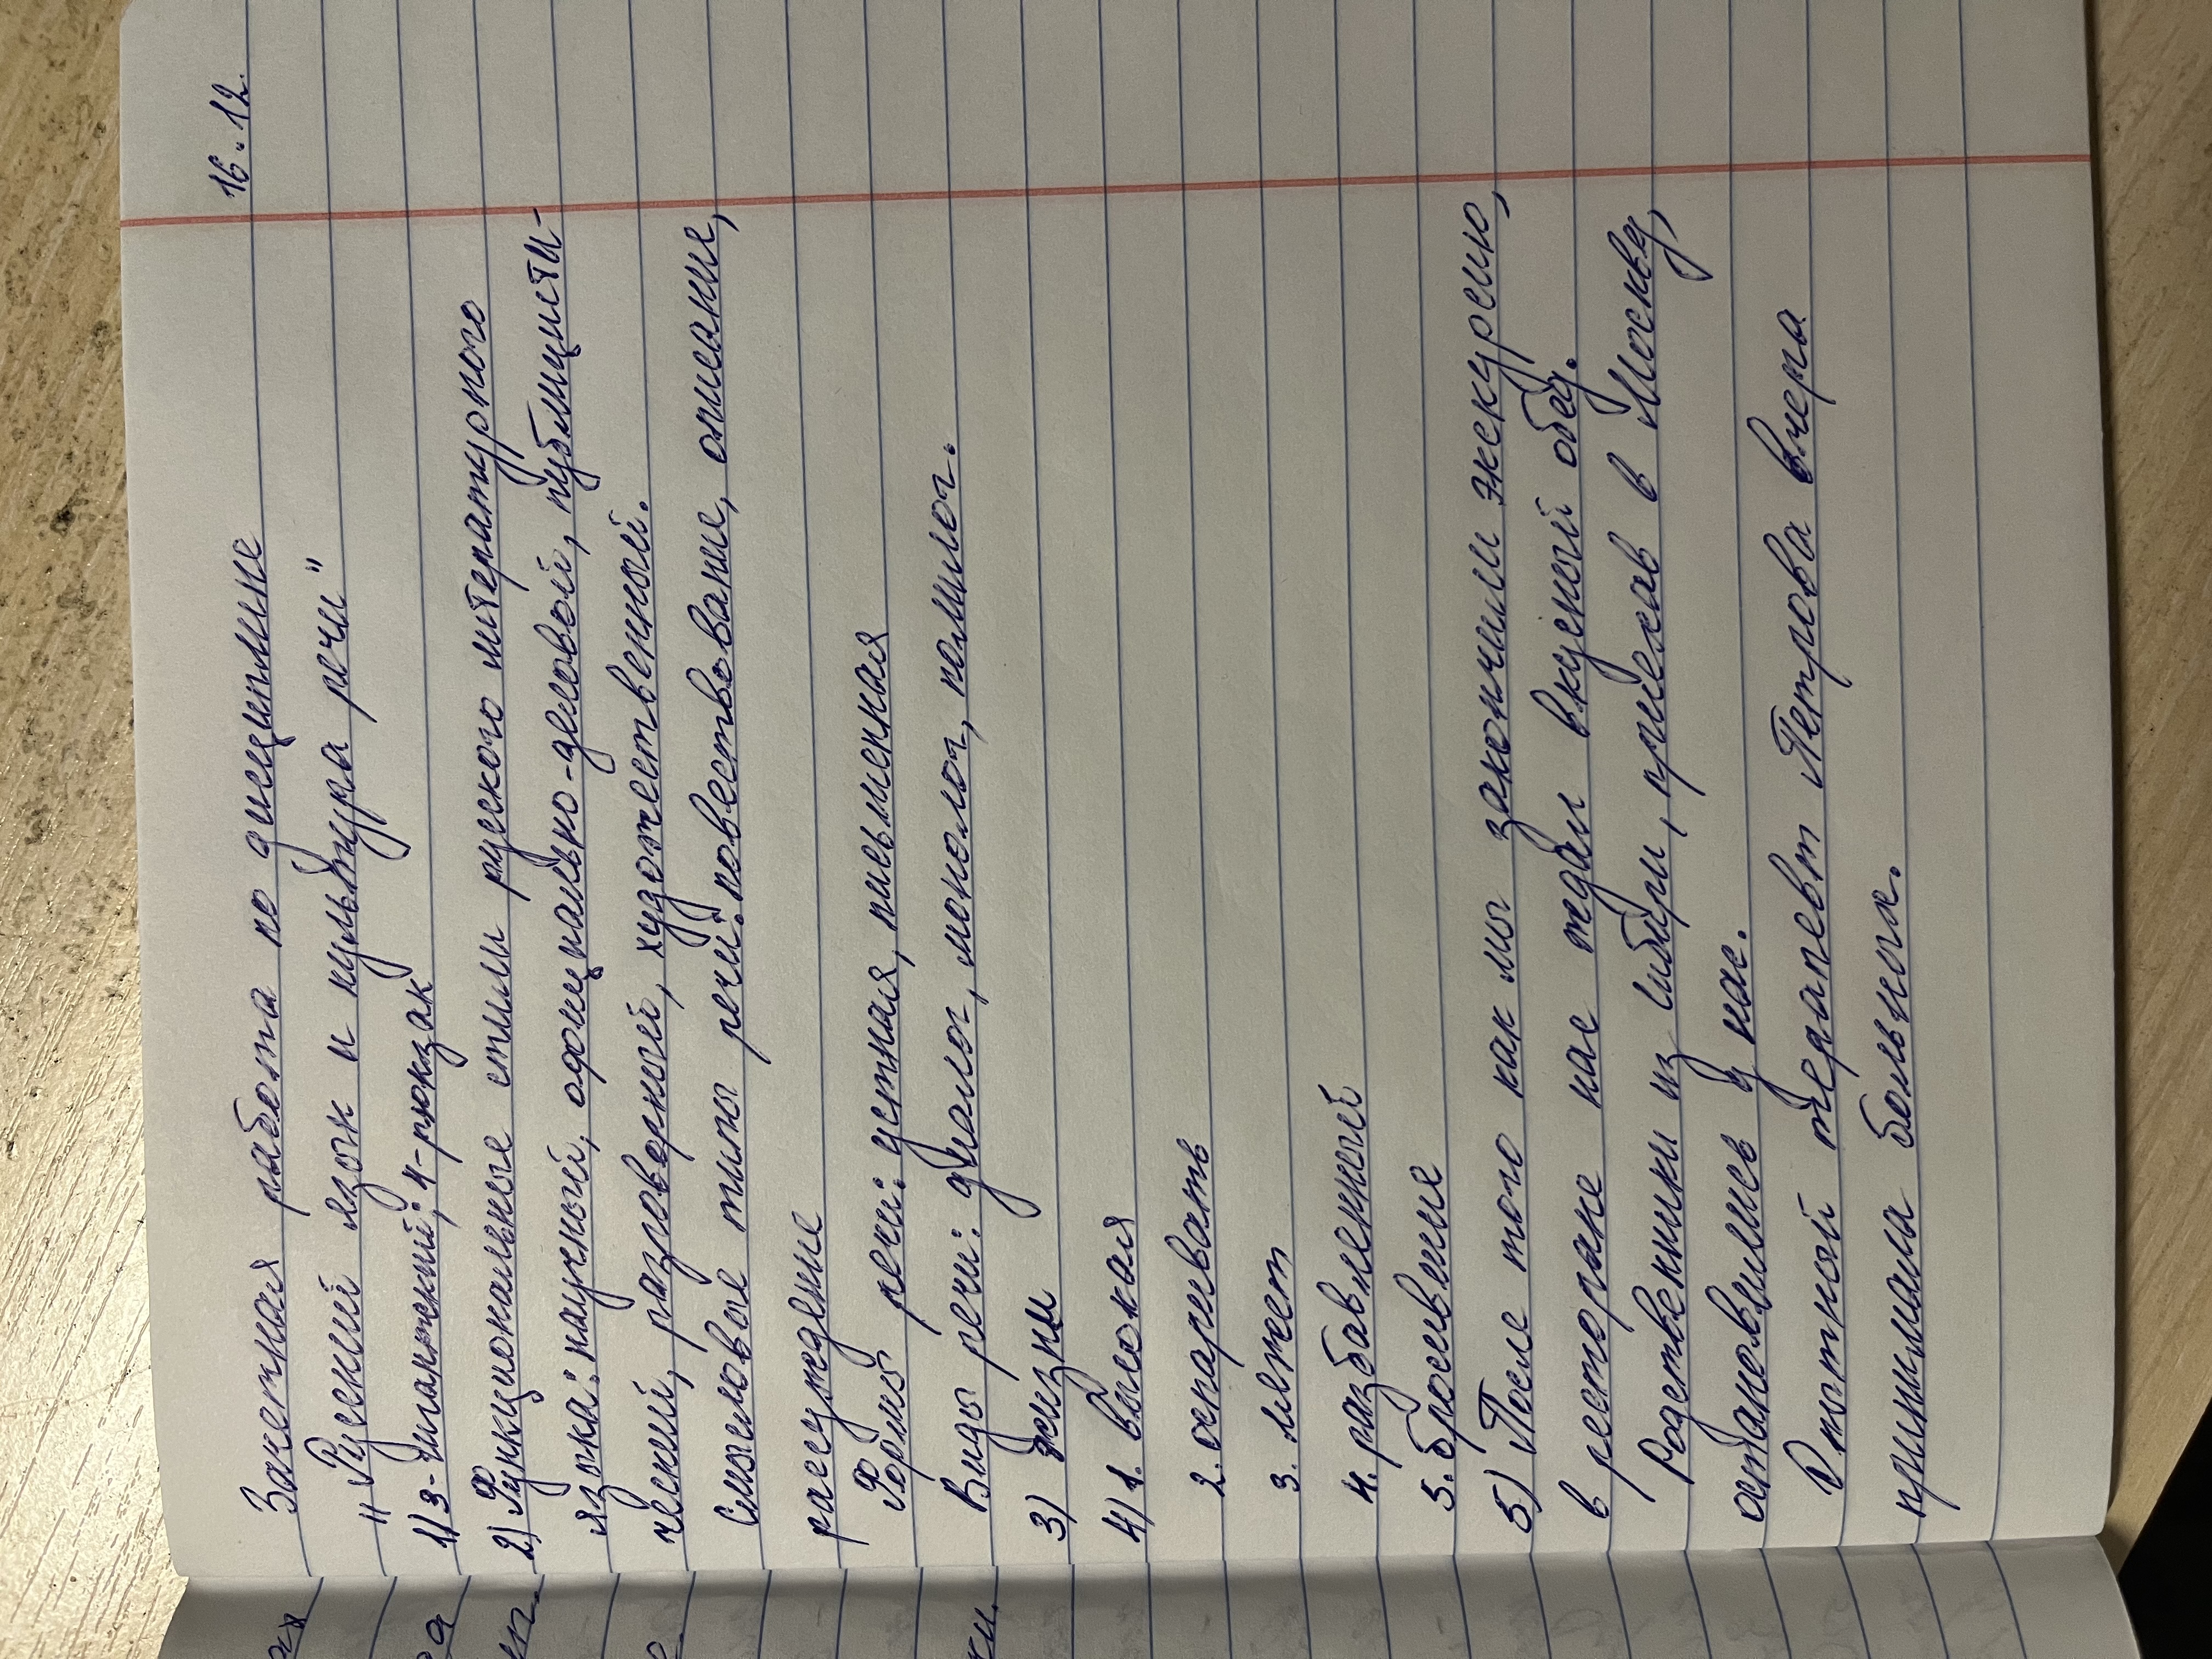 16.12.
Зачетная работа по дисциплине
"Русский язык и культура речи"
1) 3-гигантский; 4-рюкзак
2) Функциональные стили русского литературного
языка: научный, официально-деловой, публицисти-
ческий, разговорный, художественный.
Смысловые типы речи: повествование, описание,
рассуждение
Формы речи: устная, письменная
Виды речи: диалог, монолог, полилог.
3) жизни
4) 1. высокая
2. оспаривать
3. ляжет
4. разбавленный
5. бросившие
5) После того как мы закончили экскурсию,
в ресторане нас ждал вкусный обед.
Родственники из Сибири, приехав в Москву,
остановились у нас.
Опытный терапевт Петрова вчера
принимала больных.